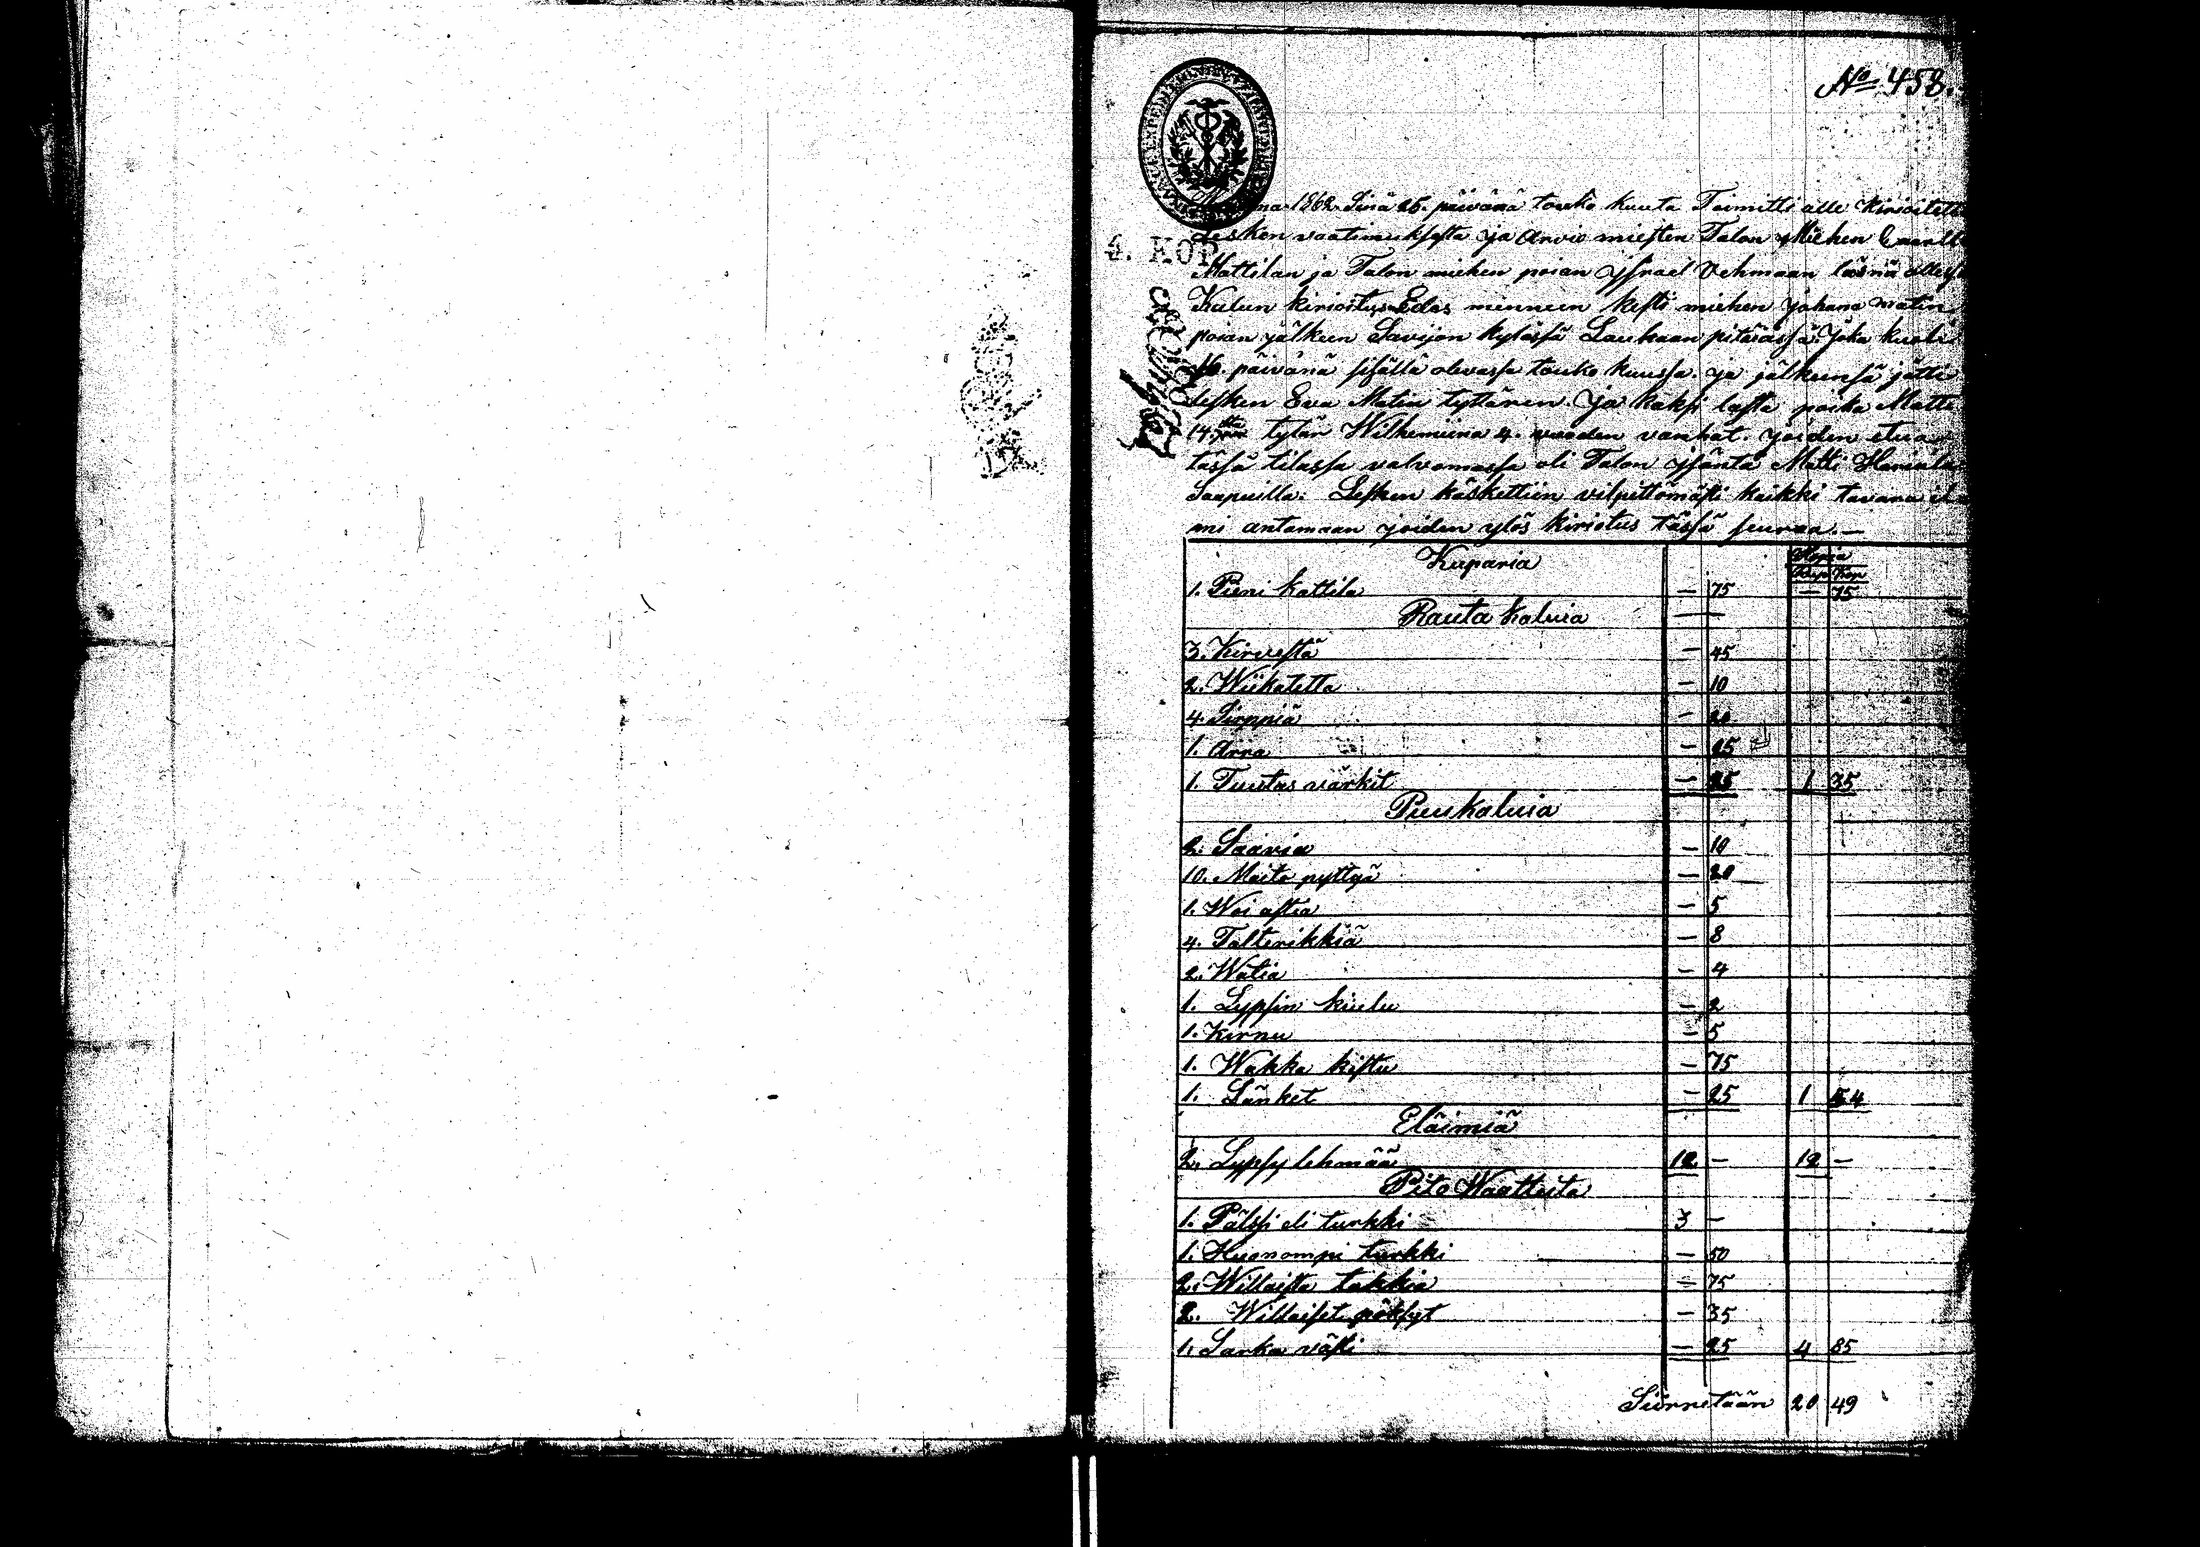 No 458.
1862 Sinä 25. päivänä touko kuuta Toimitti alle kirioitettu
Lesken vaatimuksesta ja arvio miesten Talon Miehen
4. KOP.
Mattilan ja Talon miehen poian Israel Vehmaan läsnä
Kalun kirioitus Edes menneen kesti miehen Johana Matin
poian jälkeen Savijon kylässä Lauhaan pitäiässä. Joka kuoli
16. päivänä sisällä olevassa touko kuussa. ja jälkeensä jätti
lesken Eva Matin tyttären. Ja kaksi lasta poika Matti
14. tytär Wilhemiina 4. vuoden vanhat. joiden etua
tässä tilassa valvomassa oli Talon isäntä Matti
Saapuilla: Lesken käskettiin vilpittömästi kaikki tavara
mi antamaan joiden ylös kiriotus tässä seuraa. —
Kuparia Hopia
Rup Kop
1. Pieni kattila — 75 — 75
Rauta kaluia —
3. Kirvestä — 45
2. Wiikatetta — 10
4. Sirppiä — 20
1. Arra — 25
1. Tuutas värkit — 35 1 35
Puukaluia
2. Saavia — 10
10. Maito pyttyä — 20
1. Woi astia — 5
4. Talterikkiä — 8
2. Watia — 4
1. Lypsin kiulu — 2
1. Kirnu — 5
1. Wakka kistu — 75
1. Länket — 25 1 54
Eläimiä
2. Lypsy lehmää 12 — 12 —
Pito Waatteita
1. Pälssi eli turkki 3 —
1. Huonompi turkki — 50
2. Willaista takkia — 75
2. Willaiset pöksyt — 35
1. Sarka västi — 25 4 85
Siirretään 20 49